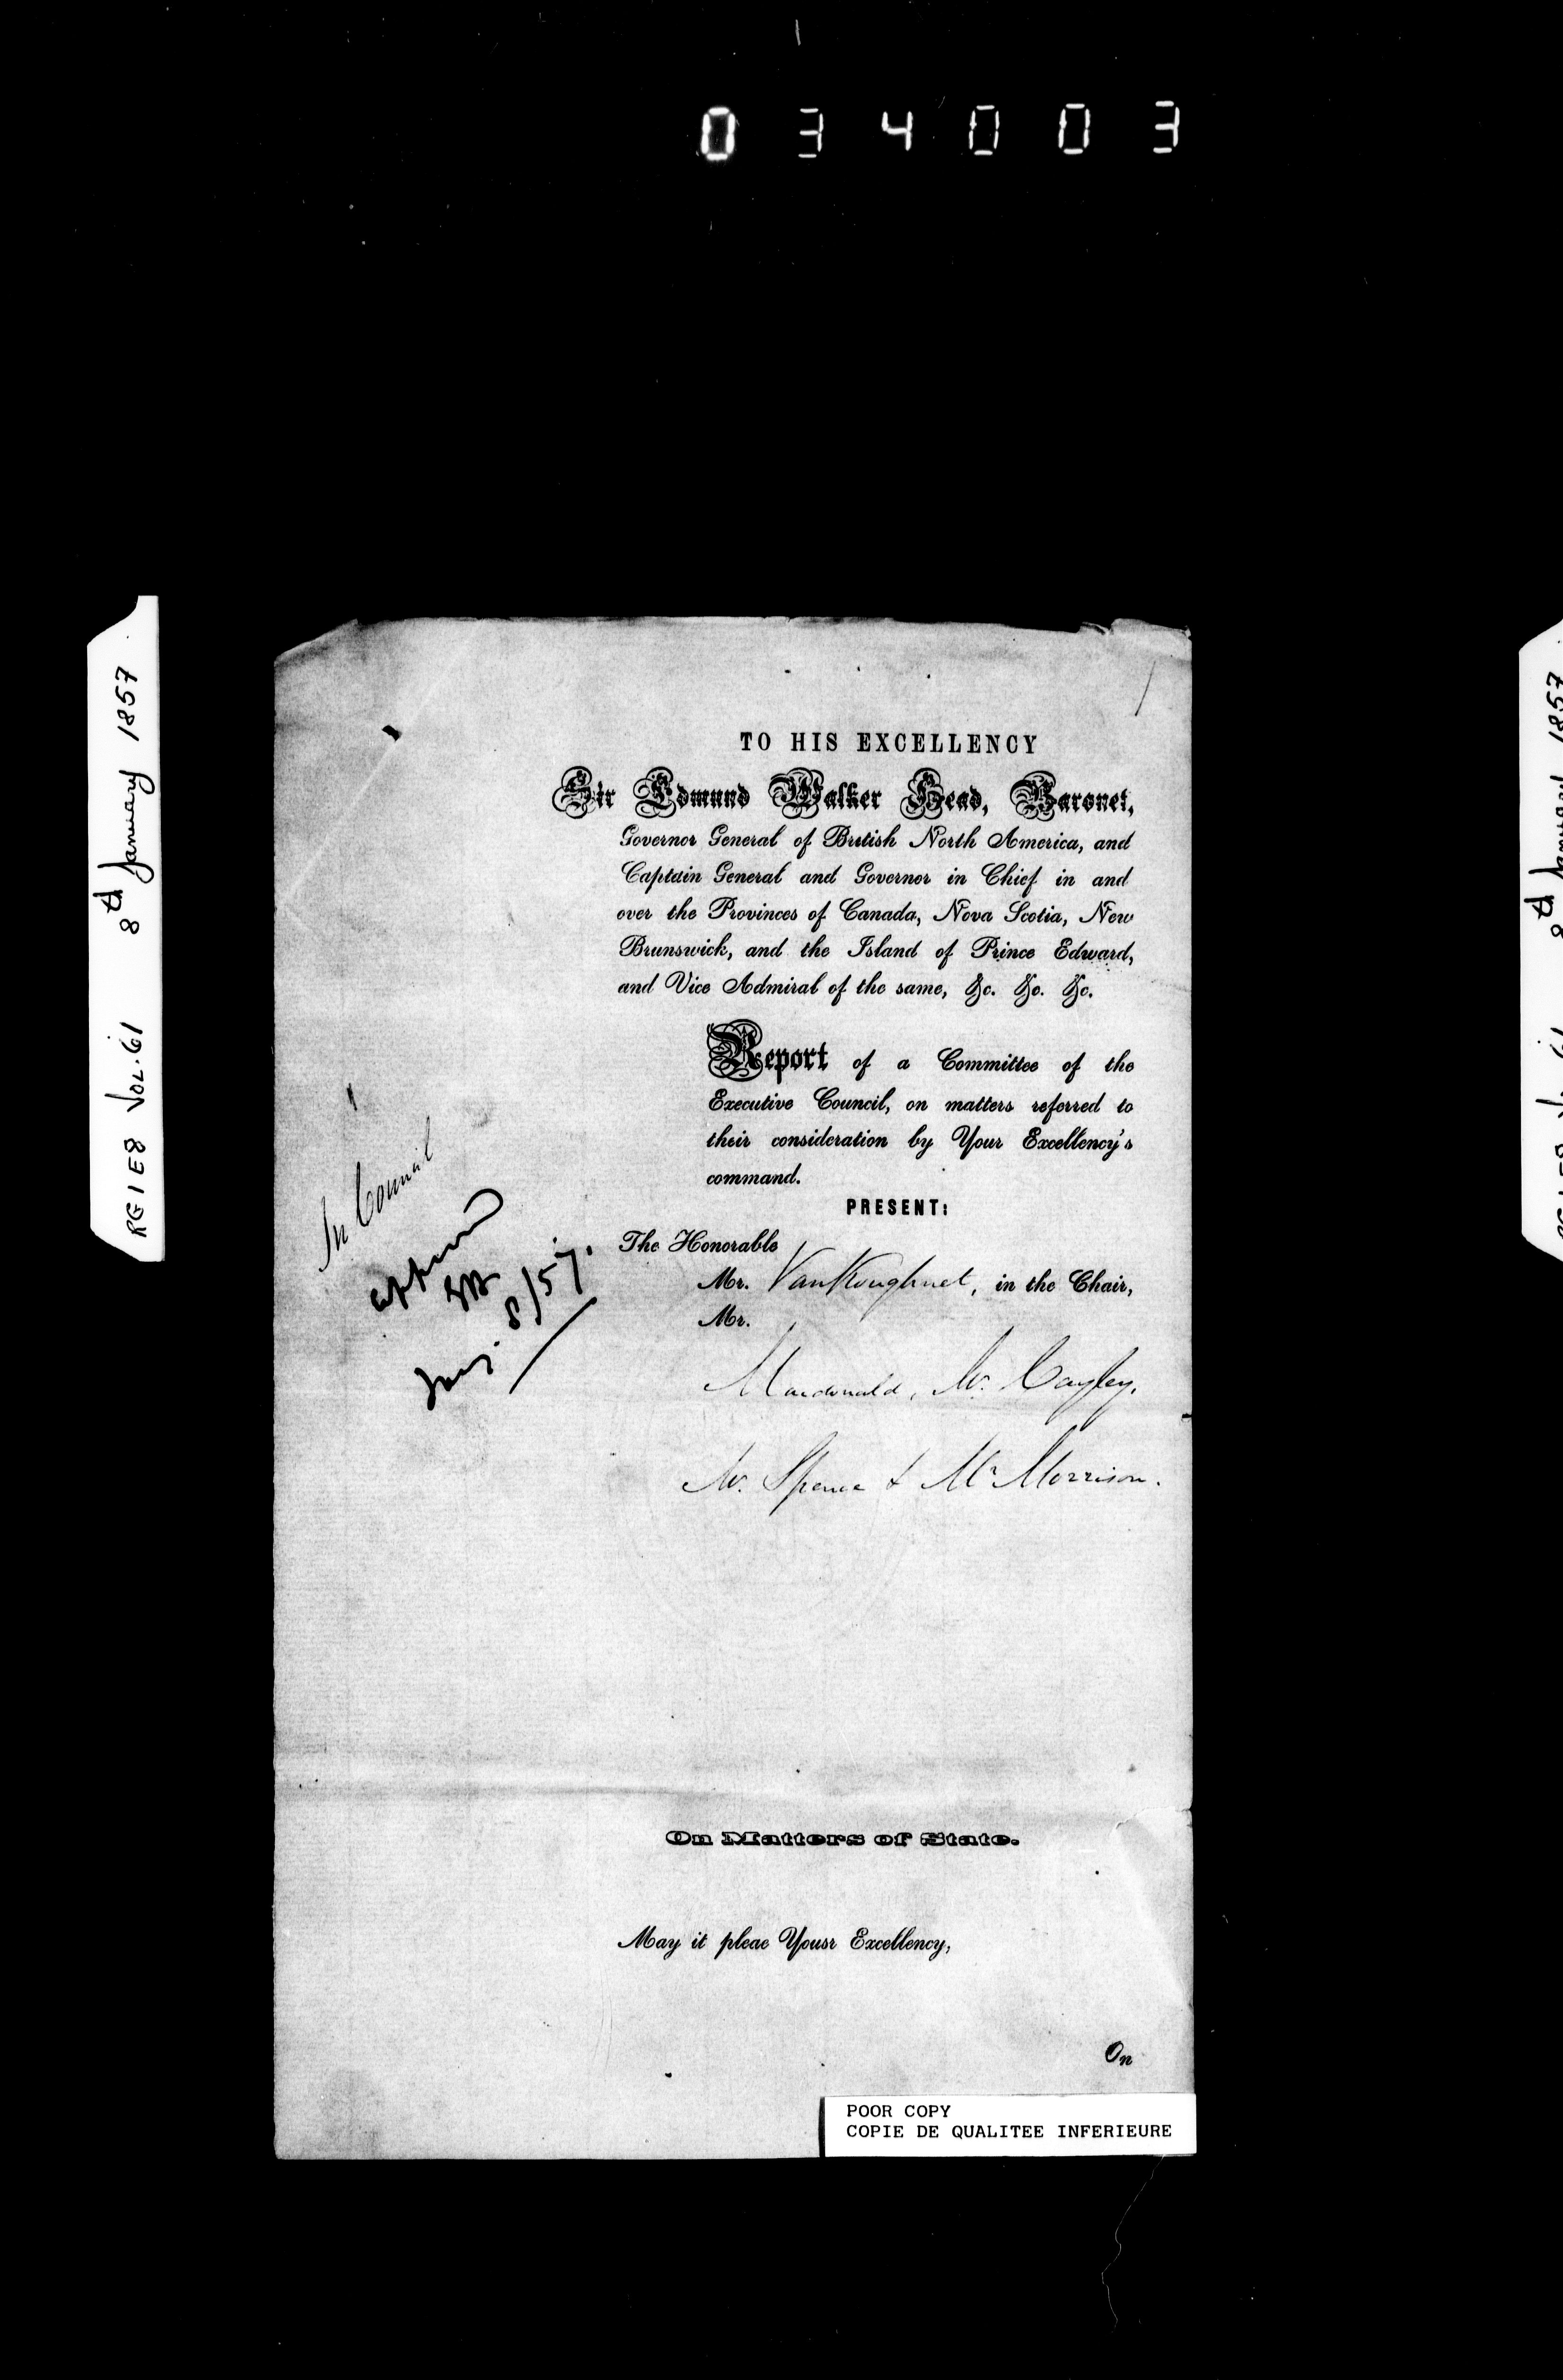 0 3 4 0 0 3
RG1E8 VOL. 61 8th January 1857
TO HIS EXCELLENCY
Sir Edmund Walker Head, Baronet,
Governor General of British North America, and
Captain General and Governor in Chief in and
over the Provinces of Canada, Nova Scotia, New
Brunswick, and the Island of Prince Edward,
and Vice Admiral of the same, &c. &c. &c.
Report of a Committee of the
Executive Council, on matters referred to
their consideration by Your Excellency's
command.
PRESENT:
The Honorable
Mr. VanKoughnet, in the Chair,
Mr.
Macdonald, Mr. Cayley,
Mr. Spence & Mr Morrison.
In Council
approved
Jany. 8/57.
On Matters of State.
May it pleae Yousr Excellency,
On
POOR COPY
COPIE DE QUALITEE INFERIEURE